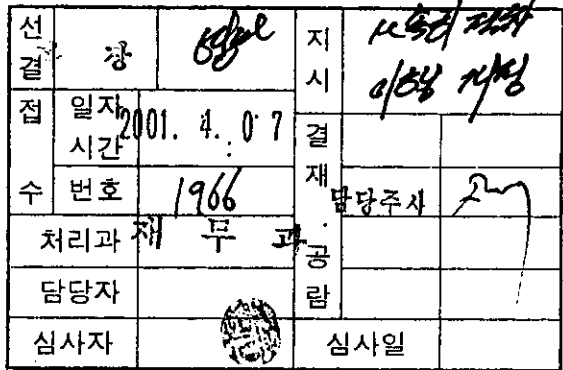 선결
지시
접수
일자
시간
2001. 4. 07
:
결재
번호
1966
담당주사
처리과
재무과
공람
담당자
심사자
심사일